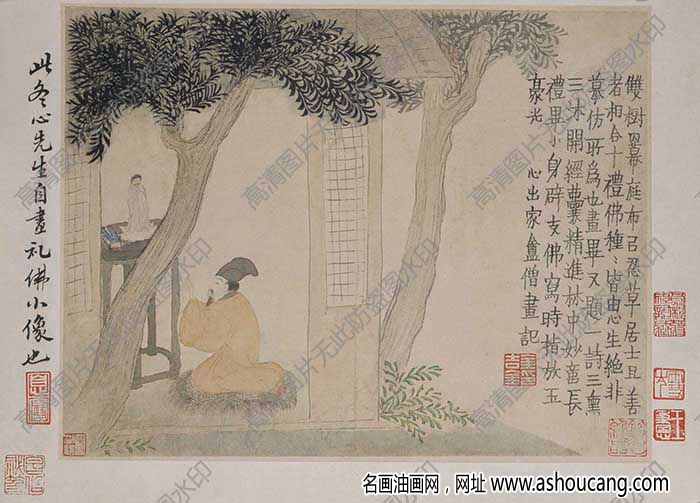 雙樹冪庭布召忍草居士且善
者相合十禮佛種〻皆由心生絶非
摹仿所為也畫畢又題一詩三熏
三沐開經囊精進林中妙長
禮畢小身辟支佛寫時指放玉
豪光 心出家盦僧畫記
此冬心先生自畫礼佛小像也
高清图片无此防盗图水印
名画油画网，网址 www.ashoucang.com